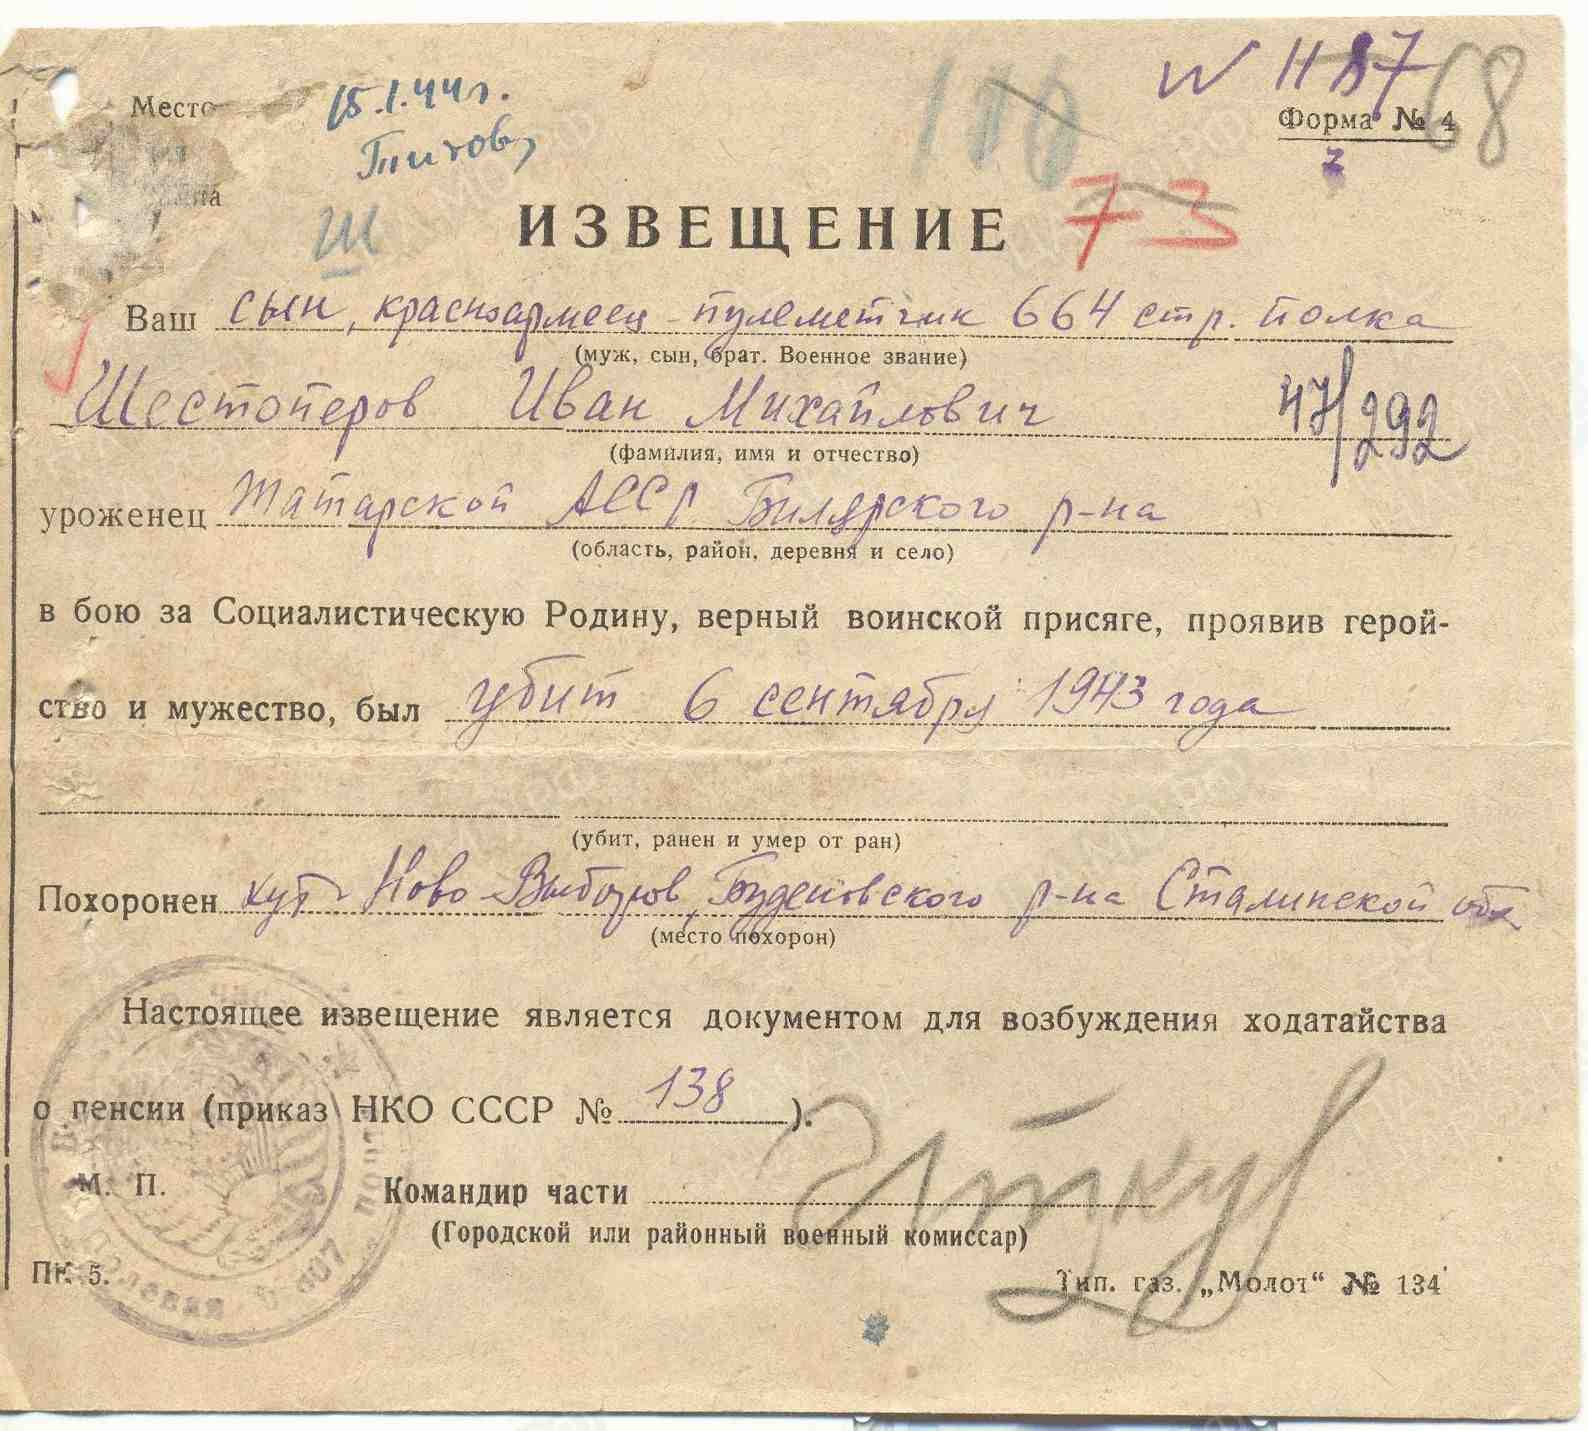 № 1187
68
116
Место
15.1.44г.
Форма № 4
Титов
Ш
ИЗВЕЩЕНИЕ 73
Ваш сын, красноармеец-пулеметчик 664 стр. полка
(муж, сын, брат. Военное звание)
Шестоперов Иван Михайлович
47/292
(фамилия, имя и отчество)
уроженец Татарской АССР Билярского р-на
(область, район, деревня и село)
в бою за Социалистическую Родину, верный воинской присяге, проявив герой-
ство и мужество, был убит 6 сентября 1943 года
(убит, ранен и умер от ран)
Похоронен хут. Ново-Выбоуров, Буденовского р-на Сталинской обл
(место похорон)
Настоящее извещение является документом для возбуждения ходатайства
о пенсии (приказ НКО СССР № 138 ).
М. П. Командир части
(Городской или районный военный комиссар)
ПК 5. Тип. газ. „Молот“ № 134